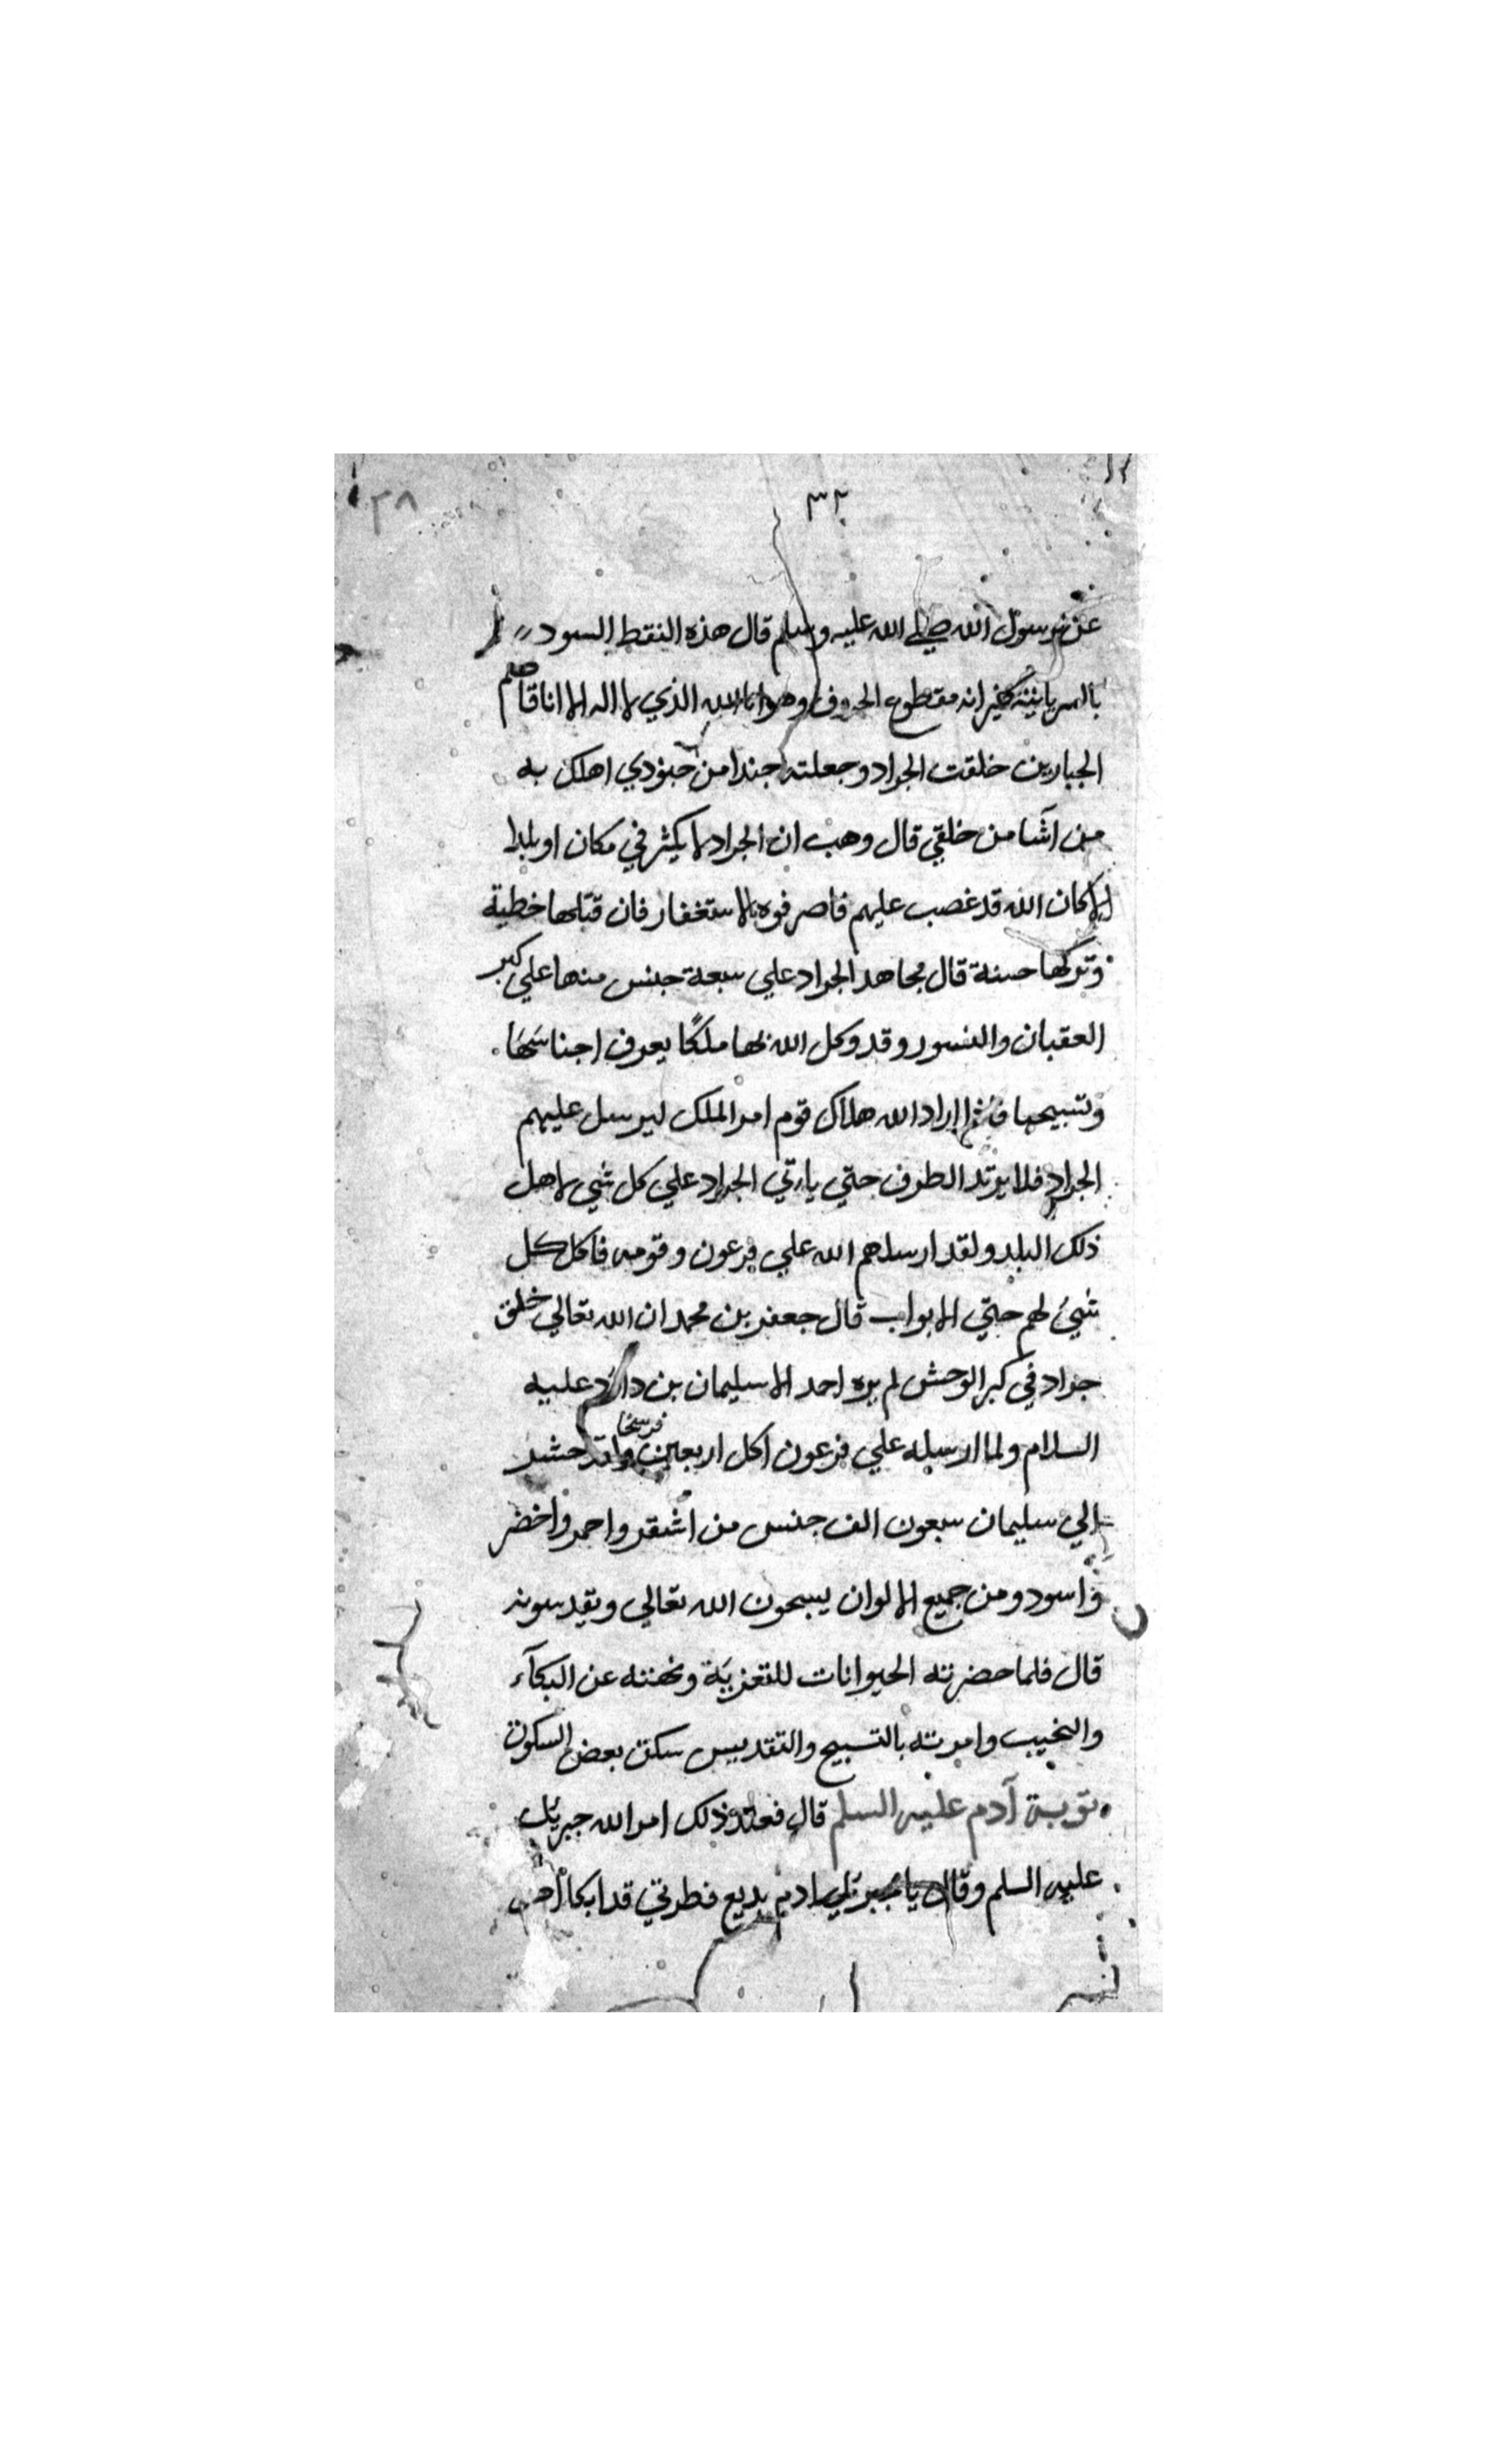 ٣٢
٣٨
عن رسول الله صلى الله عليه وسلم قال هذه النقط السود
بالسريانية غير انه مقطوع الحروف وهو انا الله الذي لا اله الا انا قاصم
الجبارين خلقت الجراد وجعلته جندا من جنودي اهلك به
من اشا من خلقي قال وهب ان الجراد لا يكثر في مكان او بلد
الا كان الله قد غضب عليهم فاصرفوه بالاستغفار فان قتلها خطية
وتركها حسنة قال مجاهد الجراد علي سبعة جنس منها علي كبر
العقبان والنسور وقد وكل الله بها ملكًا يعرف اجناسَهَا
وتسبيحها اراد الله هلاك قوم امر الملك ليرسل عليهم
الجراد فلا يرتد الطرف حتي ياتي الجراد علي كل شي لاهل
ذلك البلد ولقد ارسلهم الله علي فرعون وقومه فاكل كل
شيئ لهم حتي الابواب قال جعفر بن محمد ان الله تعالي خلق
جراد في كبر الوحش لم يره احد الا سليمان بن داود عليه
السلام ولما ارسله علي فرعون اكل اربعين فرسخا ولقد حشد
الي سليمان سبعون الف جنس من اشقر واحمر واخضر
واسود ومن جميع الالوان يسبحون الله تعالي ويقدسونه
قال فلما حضرته الحيوانات للتعزية ونهته عن البكآء
والنحيب وامرته بالتسبيح والتقديس سكن بعض السكون
توبة آدم عليه السلم قال فعند ذلك امر الله جبريل
عليه السلم وقال يا جبريل ادم بديع فطرتي قد ابكا